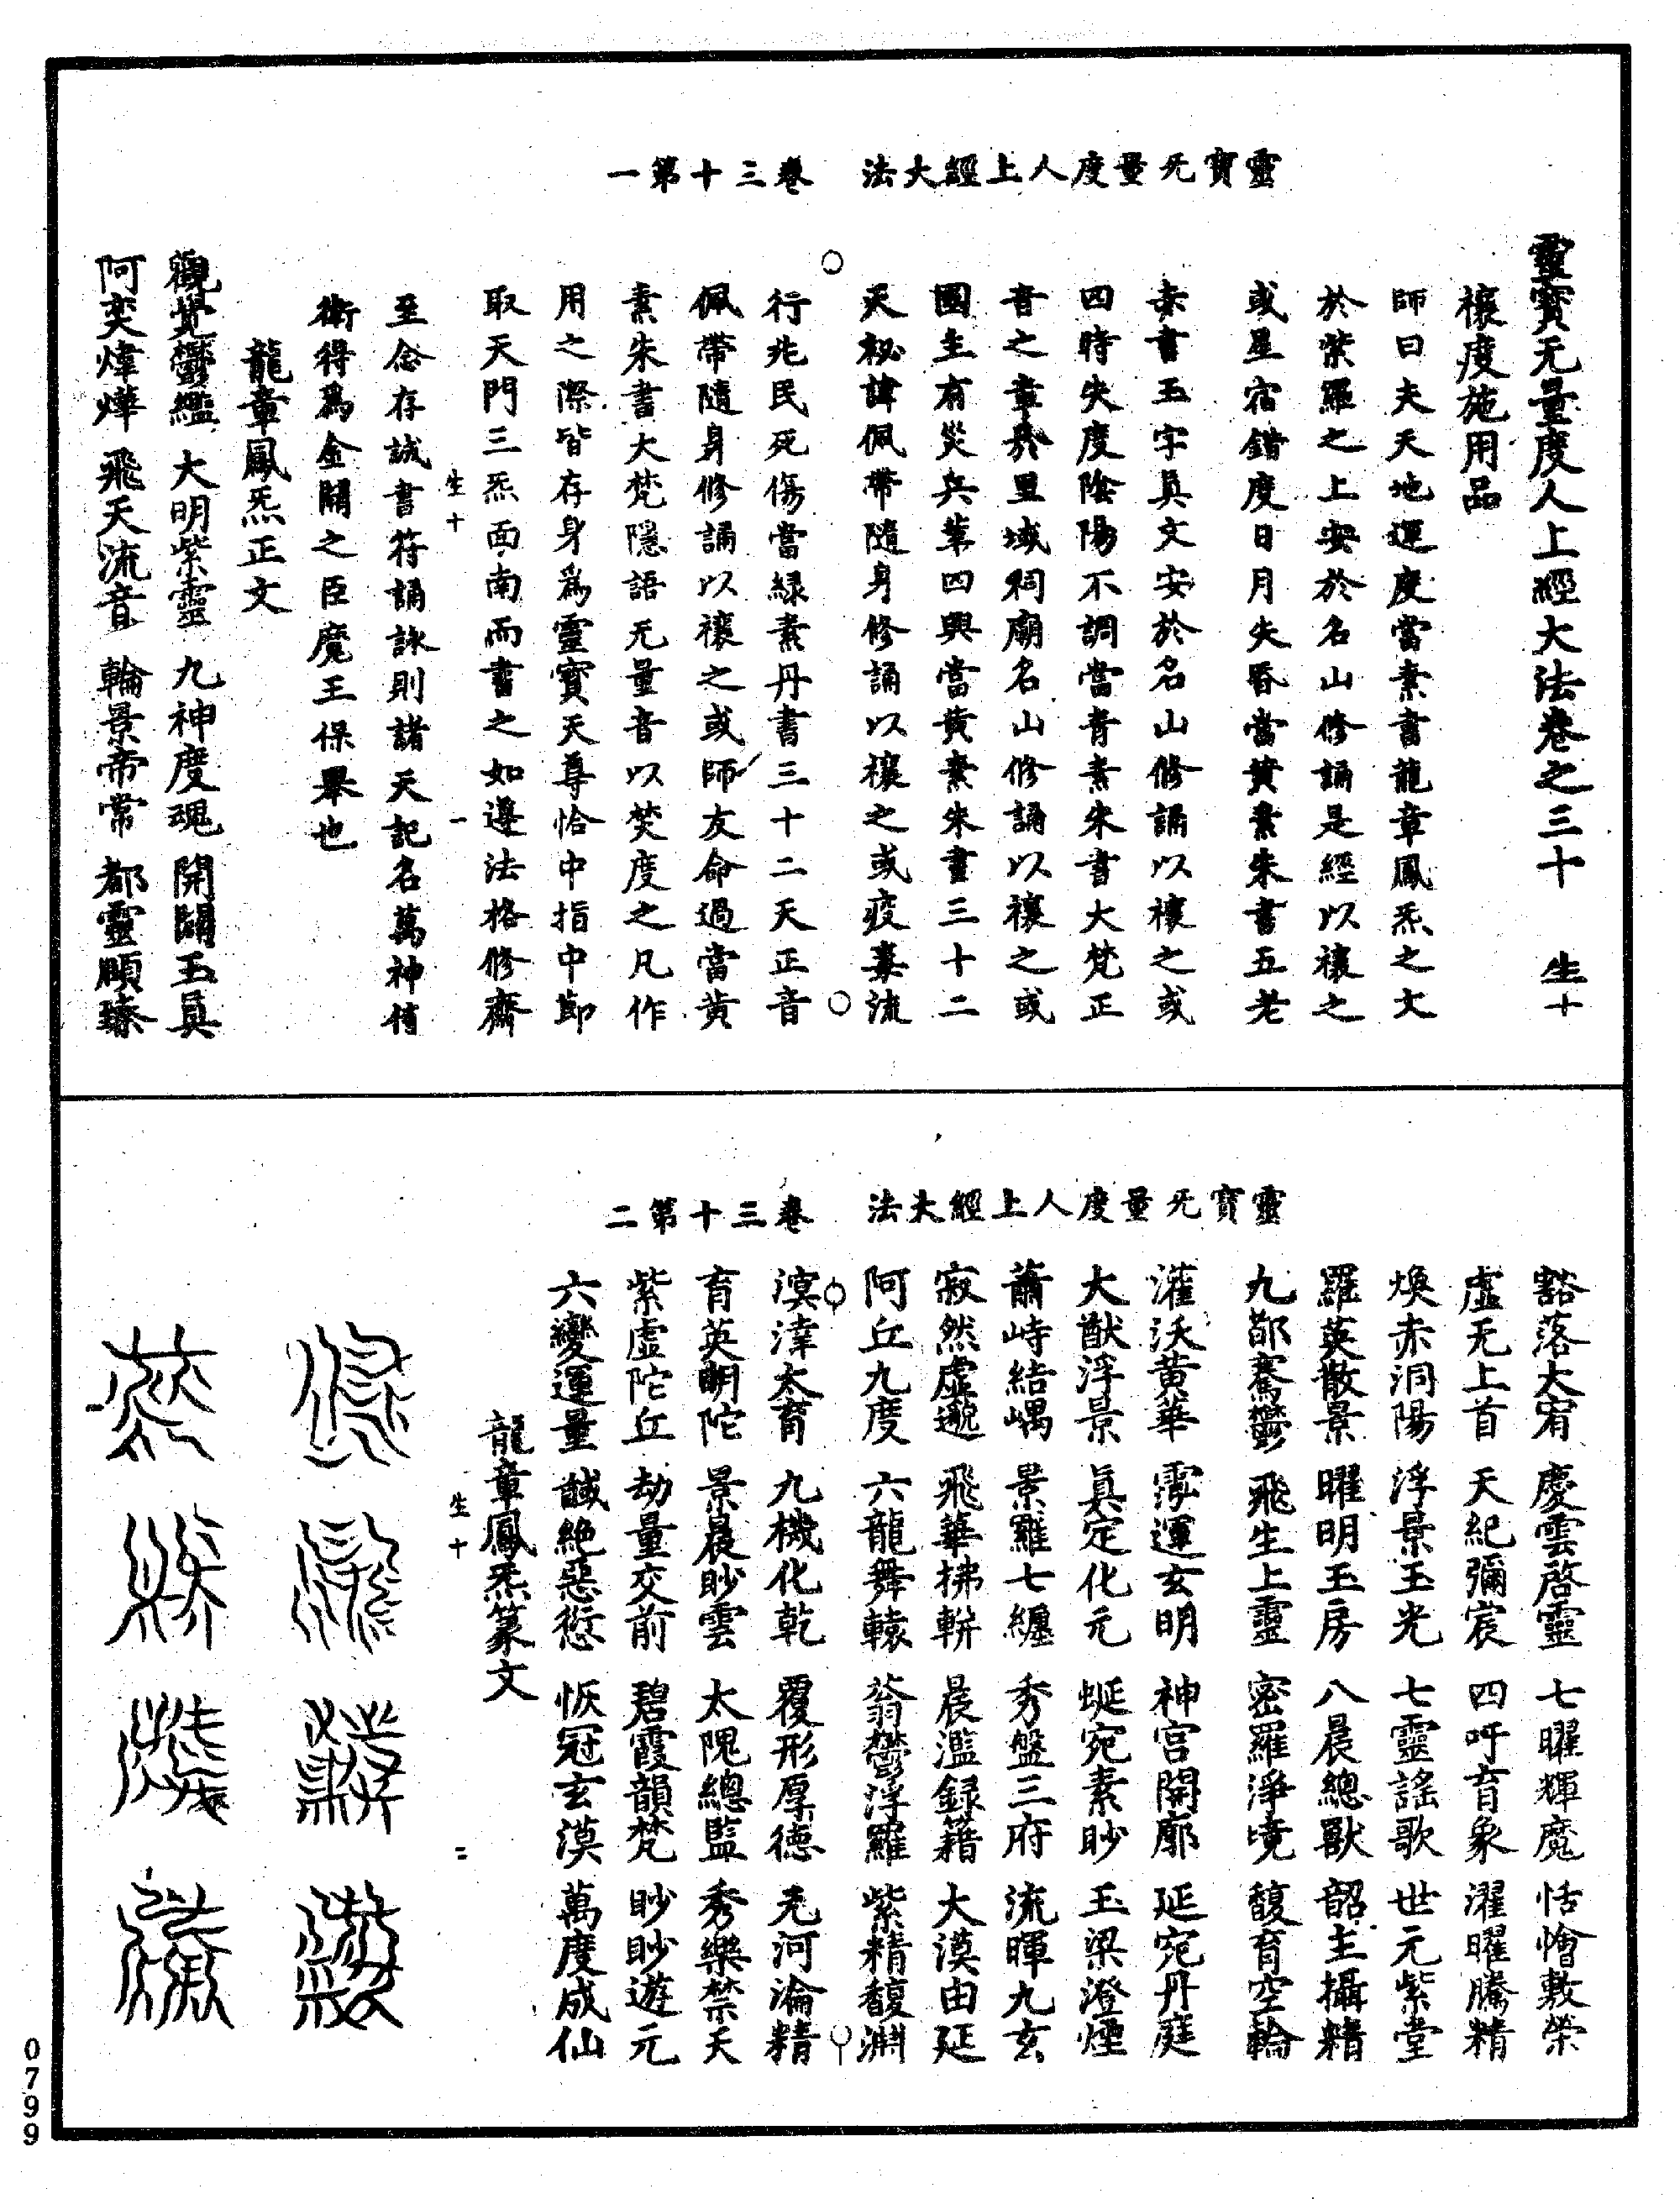 靈寶无量度人上經大法　卷三十第一
靈寶无量度人上經大法卷之三十　生十
禳度施用品
師曰夫天地運度當素書龍章鳳炁之文
於紫羅之上安於名山修誦是經以禳之
或星宿錯度日月失昏當黃素朱書五老
赤書玉字真文安於名山修誦以禳之或
四時失度陰陽不調當青素朱書大梵正
音之章於里域祠廟名山修誦以禳之或
國主有災兵革四興當黃素朱畫三十二
天祕諱佩帶隨身修誦以禳之或疫毒流
行兆民死傷當緑素丹書三十二天正音
佩帶隨身修誦以禳之或師友命過當黃
素朱書大梵隱語无量音以焚度之凡作
用之際皆存身爲靈寶天尊恰中指中節
取天門三炁面南而書之如遵法格修齋
生十　一
至念存誠書符誦詠則諸天記名萬神侍
衛得爲金闕之臣魔王保舉也
龍章鳳炁正文
觀覺鬱鑑　大明紫靈　九神度魂　開闢玉真
阿奕煒燁　飛天流音　輪景帝常　都靈順臻
靈寶无量度人上經大法　卷三十第二
豁落大宥　慶雲啓靈　七曜輝魔　恬愉敷榮
虛无上首　天紀彌宸　四吁育象　濯曜騰精
煥赤洞陽　浮景玉光　七靈謠歌　世元紫堂
羅英散景　曜明玉房　八晨總獸　韶主攝精
九都騫鬱　飛生上靈　密羅淨境　馥育空輪
灌沃黃華　霈運玄明　神宮開廓　延宛丹庭
大猷浮景　真定化元　蜒宛素眇　玉梁澄煙
蕭峙結嵎　景羅七纏　秀盤三府　流暉九玄
寂然虛邈　飛華拂軿　晨濫録籍　大漠由延
阿丘九度　六龍舞轅　蓊鬱浮羅　紫精馥淵
溟涬太育　九機化乾　覆形厚德　无河淪精
育英明陀　景晨眇雲　太隗總監　秀樂禁天
紫虛陀丘　劫量交前　碧霞韻梵　眇眇遊元
六變運量　馘絶惡愆　恢冠玄漠　萬度成仙
龍章鳳炁篆文
生十　二
0799